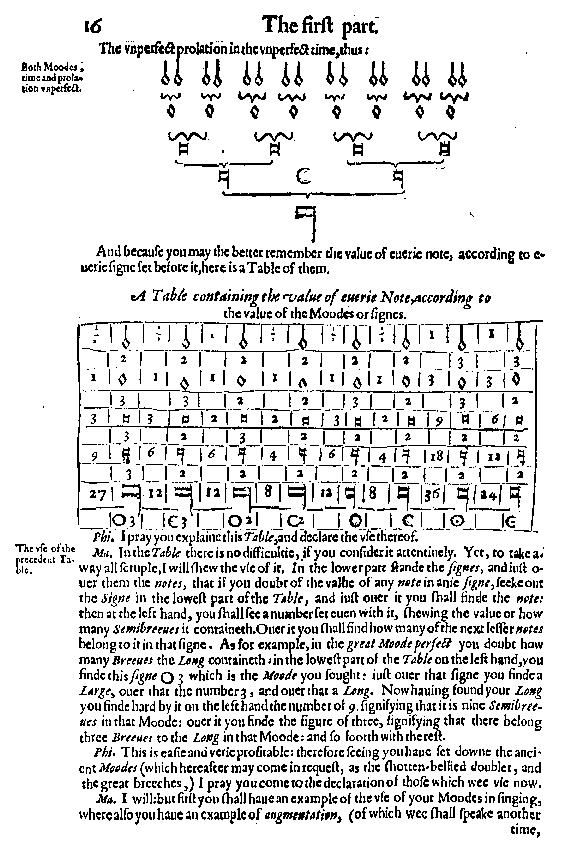 16 The firſt part.
The vnperfect prolation in the vnperfect time, thus:
Both Moodes,
time and prola-
tion vnperfect.
C
And becauſe you may the better remember the value of euerie note, according to e-
uerie ſigne ſet before it, here is a Table of them.
A Table containing the value of euerie Note, according to
the value of the Moodes or ſignes.
2 2 2 2 2 2 3 3
1 1 1 1 1 1 3 3
3 3 2 2 2 2 3 2
3 3 2 2 3 2 9 6
3 2 3 2 2 2 2 2
9 6 6 4 6 4 18 12
3 2 2 2 2 2 2 2
27 12 12 8 12 8 36 24
O3 C3 O2 C2 O C ʘ
Phi. I pray you explaine this Table, and declare the vſe thereof.
The vſe of the
precedent Ta-
ble.
Ma. In the Table there is no difficultie, if you conſider it attentiuely. Yet, to take a-
way all ſcruple, I will ſhew the vſe of it. In the lower part ſtande the ſignes, and iuſt o-
uer them the notes, that if you doubt of the value of any note in anie ſigne, ſeeke out
the Signe in the loweſt part of the Table, and iuſt ouer it you ſhall finde the note:
then at the left hand, you ſhall ſee a number ſet euen with it, ſhewing the value or how
many Semibreeues it containeth. Ouer it you ſhall find how many of the next leſſer notes
belong to it in that ſigne. As for example, in the great Moode perfect you doubt how
many Breeues the Long containeth: in the loweſt part of the Table on the left hand, you
finde this ſigne O 3 which is the Moode you ſought: iuſt ouer that ſigne you finde a
Large, ouer that the number 3, and ouer that a Long. Now hauing found your Long
you finde hard by it on the left hand the number of 9. ſignifying that it is nine Semibree-
ues in that Moode: ouer it you finde the figure of three, ſignifying that there belong
three Breeues to the Long in that Moode: and ſo foorth with the reſt.
Phi. This is eaſie and verie profitable: therefore ſeeing you haue ſet downe the anci-
ent Moodes (which hereafter may come in requeſt, as the ſhotten-bellied doublet, and
the great breeches,) I pray you come to the declaration of thoſe which wee vſe now.
Ma. I will: but firſt you ſhall haue an example of the vſe of your Moodes in ſinging,
where alſo you haue an example of augmentation, (of which wee ſhall ſpeake another
time,